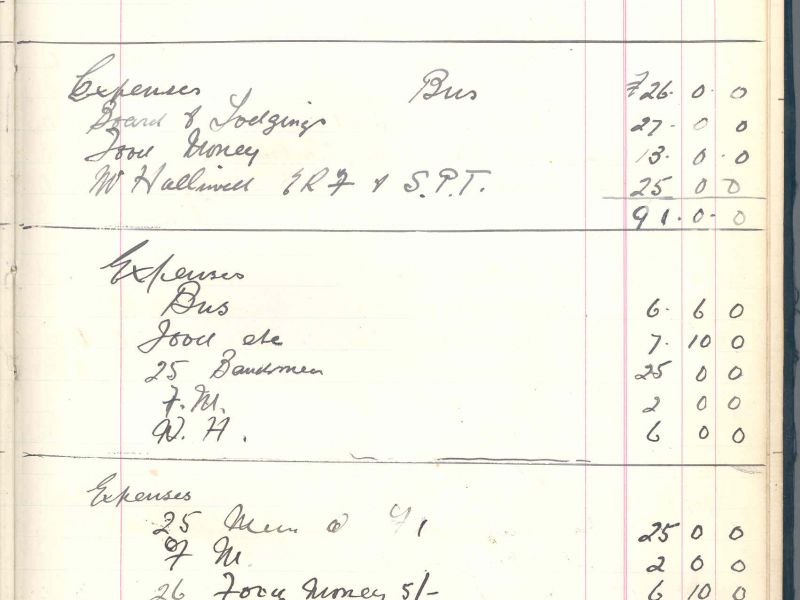 Expenses Bus £26. 0. 0
Board & Lodgings 27. 0 0
Food Money 13. 0. 0
W Halliwell & S.P.T. 25 0 0
91. 0. 0
Expenses
Bus 6. 6 0
Food etc 7. 10 0
25 Bandsmen 25 0 0
F. M. 2 0 0
W. H. 6 0 0
Expenses
25 Men @ £1 25 0 0
F M 2 0 0
26 Food Money 5/- 6 10 0